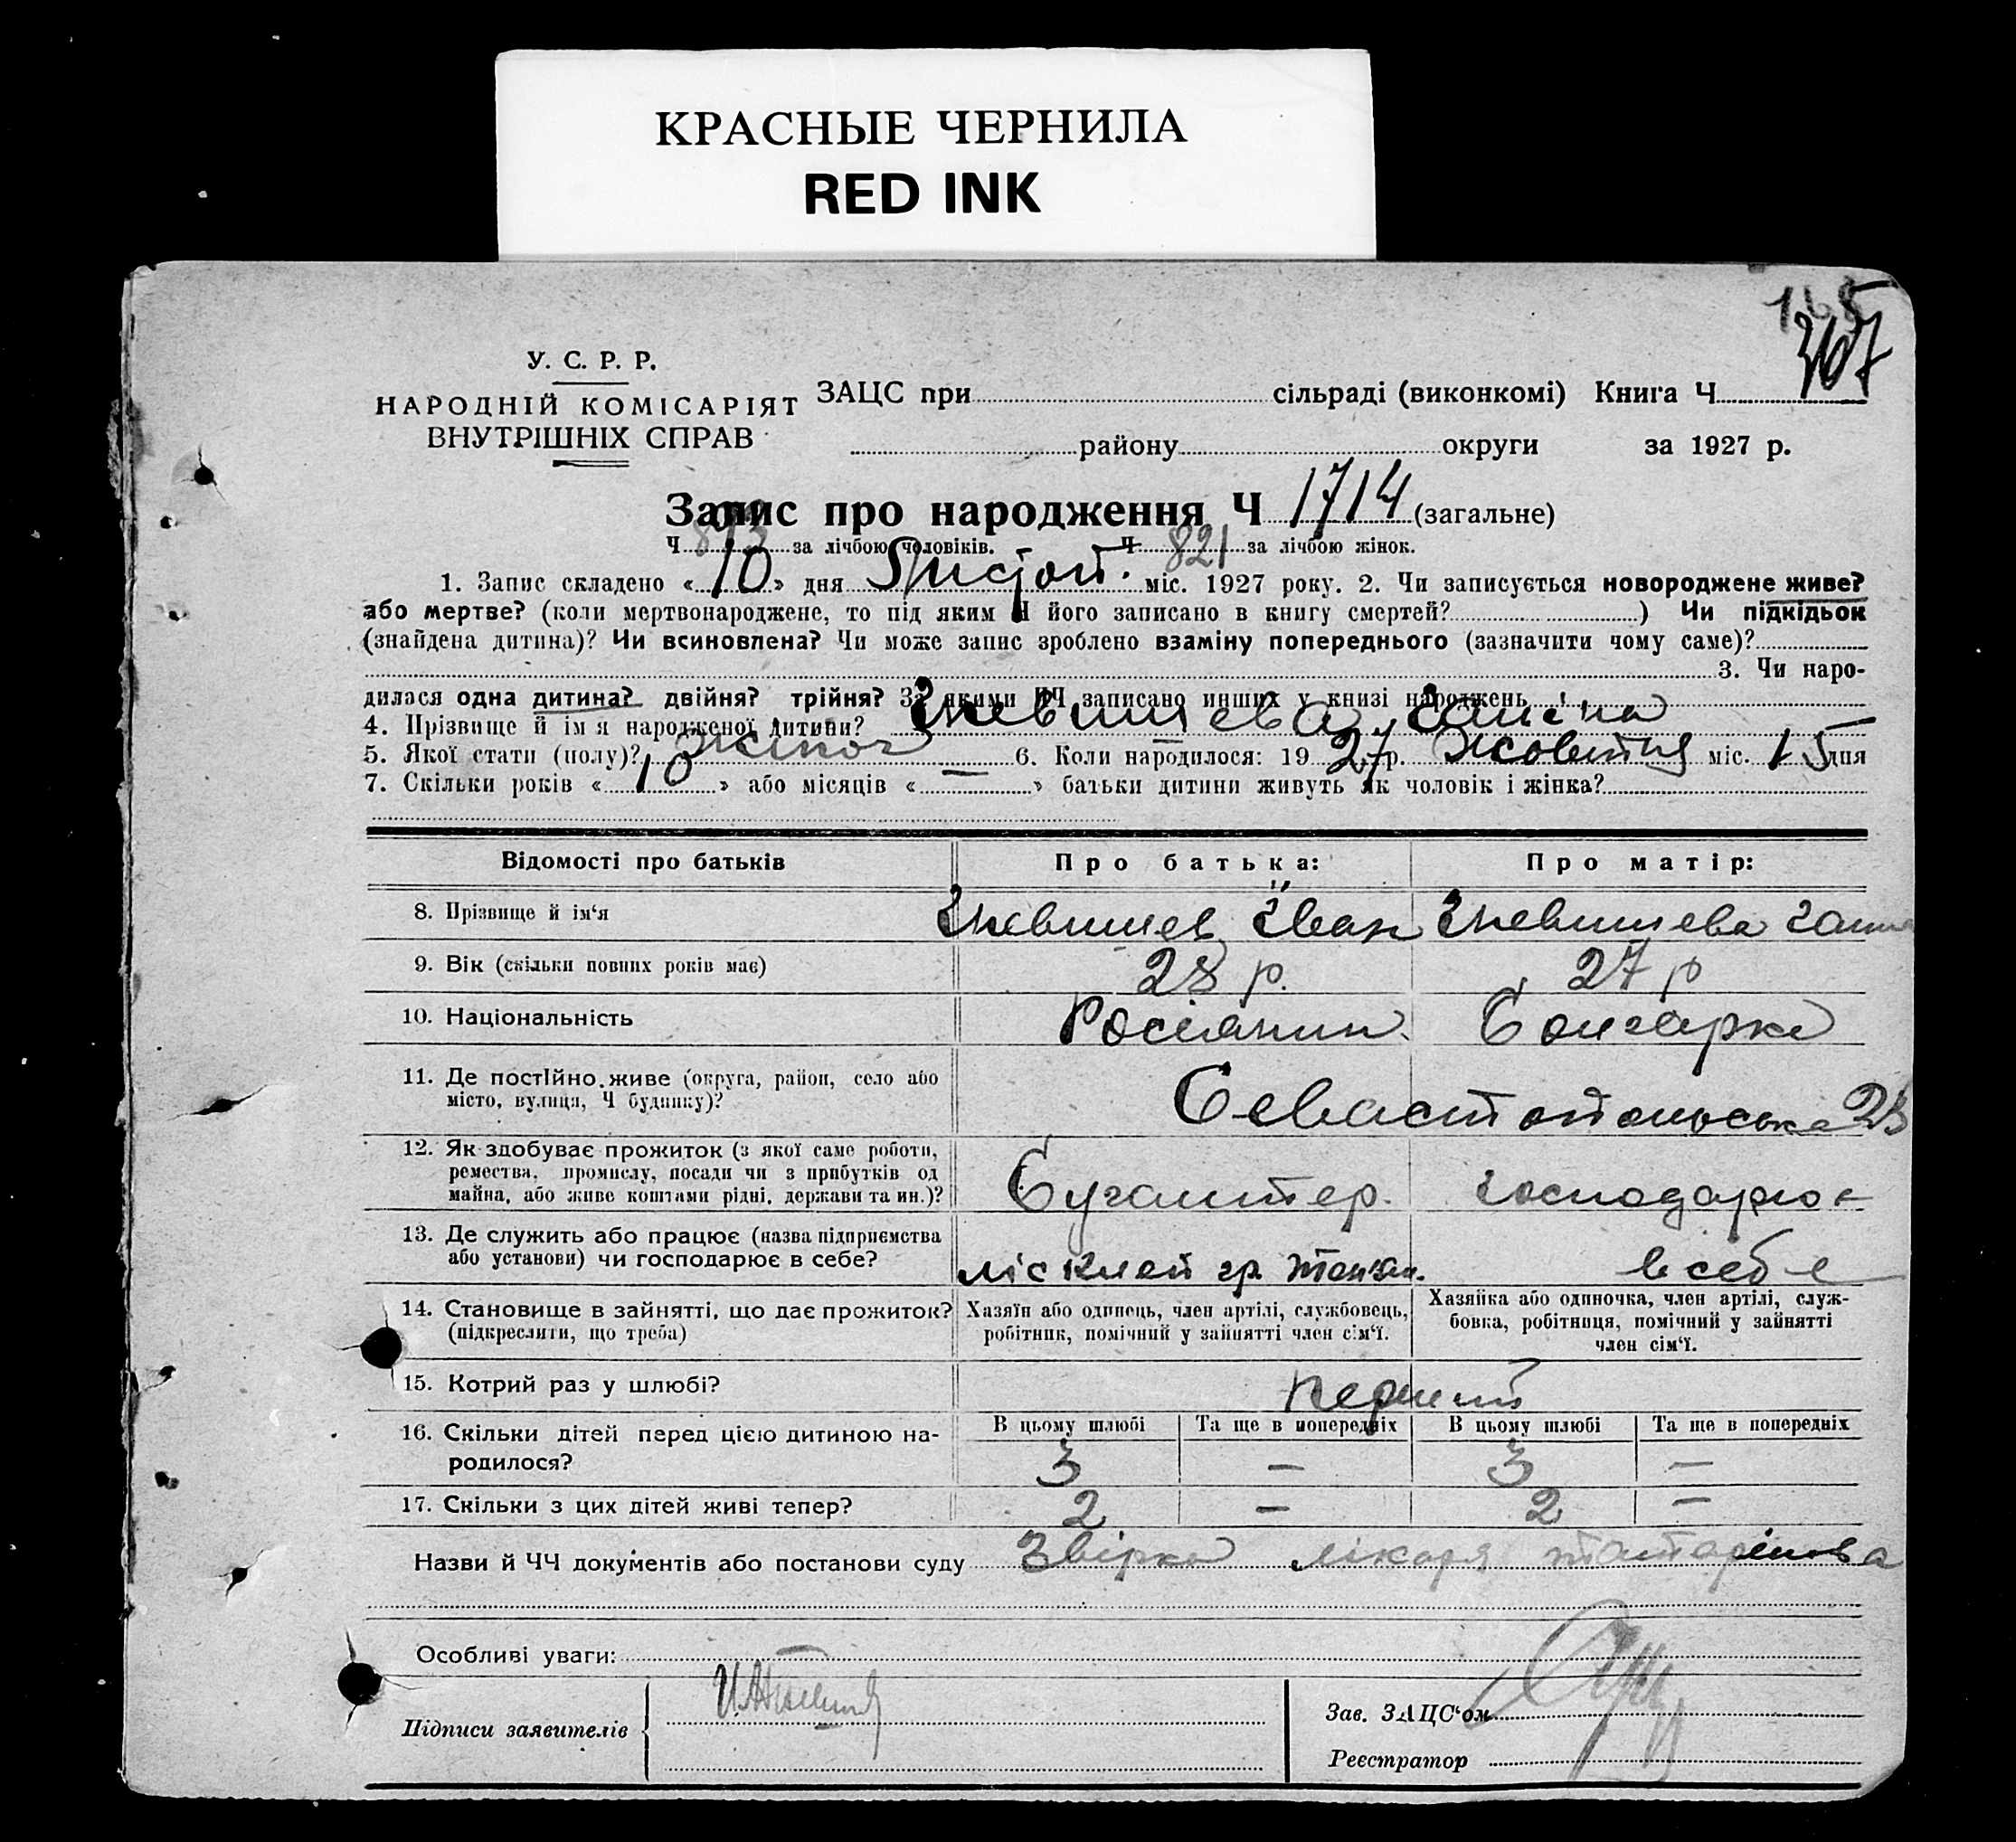 КРАСНЫЕ ЧЕРНИЛА
RED INK
165
367
У. С. Р. Р.
НАРОДНІЙ КОМІСАРІЯТ
ВНУТРІШНІХ СПРАВ
ЗАЦС при сільраді (виконкомі) Книга Ч
району округи за 1927 р.
Запис про народження Ч 1714 (загальне)
Ч 893 за лічбою чоловіків. Ч 821 за лічбою жінок.
1. Запис складено « 10 » дня Листоп. міс. 1927 року. 2. Чи записується новороджене живе?
або мертве? (коли мертвонароджене, то під яким Ч його записано в книгу смертей? ) Чи підкідьок
(знайдена дитина)? Чи всиновлена? Чи може запис зроблено взаміну попереднього (зазначити чому саме)?
3. Чи наро-
дилася одна дитина? двійня? трійня? За якими ЧЧ записано инших у книзі народжень
4. Прізвище й ім'я народженої дитини? Гневишева Галина
5. Якої стати (полу)? жіноч 6. Коли народилося: 19 27 р. жовтня міс. 15 дня
7. Скільки років « 10 » або місяців « — » батьки дитини живуть як чоловік і жінка?
Відомості про батьків Про батька: Про матір:
8. Прізвище й ім'я Гневишев Іван Гневишева Ганна
9. Вік (скільки повних років має) 28 р. 27 р
10. Національність Росіянин Болгарка
11. Де постійно живе (округа, район, село або
місто, вулиця, Ч будинку)? Севастопольська
12. Як здобуває прожиток (з якої саме роботи,
ремества, промислу, посади чи з прибутків од
майна, або живе коштами рідні, держави та ин.)? Бухгалтер. господарює
13. Де служить або працює (назва підприємства
або установи) чи господарює в себе? в себе
14. Становище в зайнятті, що дає прожиток?
(підкреслити, що треба)
Хазяїн або одинець, член артілі, службовець,
робітник, помічний у зайнятті член сім'ї.
Хазяйка або одиночка, член артілі, служ-
бовка, робітниця, помічний у зайнятті
член сім'ї.
15. Котрий раз у шлюбі? перший
16. Скільки дітей перед цією дитиною на-
родилося?
В цьому шлюбі Та ще в попередніх В цьому шлюбі Та ще в попередніх
3 — 3 —
17. Скільки з цих дітей живі тепер? 2 — 2 —
Назви й ЧЧ документів або постанови суду Звірка лікаря Татарінова
Особливі уваги:
Підписи заявителів
Зав. ЗАЦС'ом
Реєстратор